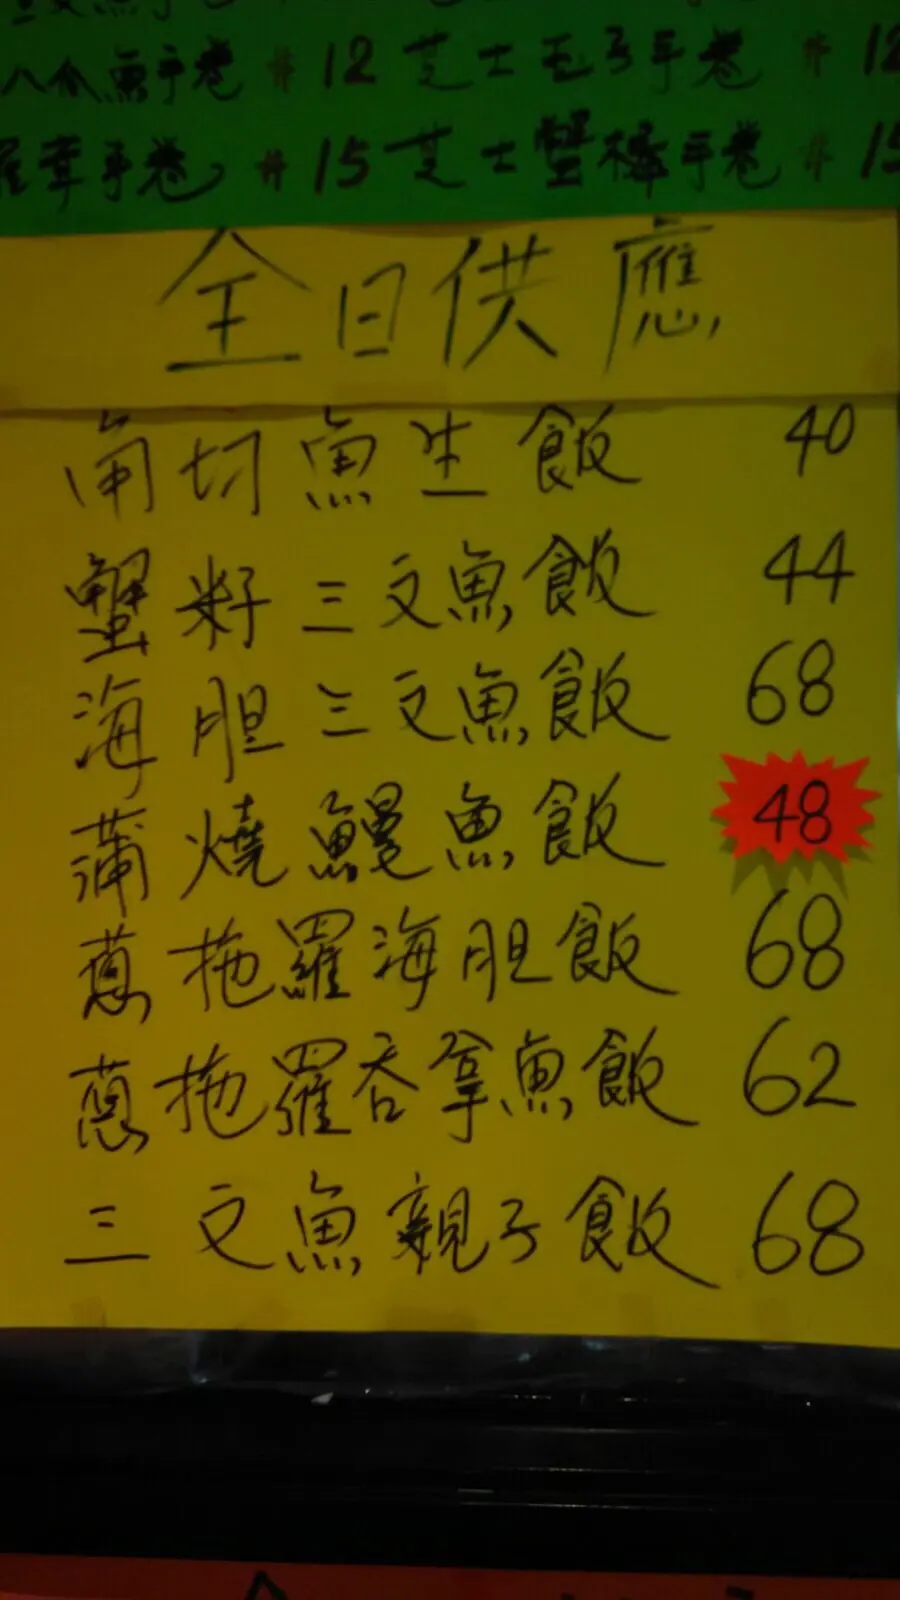 八爪魚手卷 # 12 芝士玉子手卷 # 12
手卷 # 15 芝士蟹棒手卷 # 15
全日供應
角切魚生飯 40
蟹籽三文魚飯 44
海胆三文魚飯 68
蒲燒鰻魚飯 48
蔥拖羅海胆飯 68
蔥拖羅吞拿魚飯 62
三文魚親子飯 68